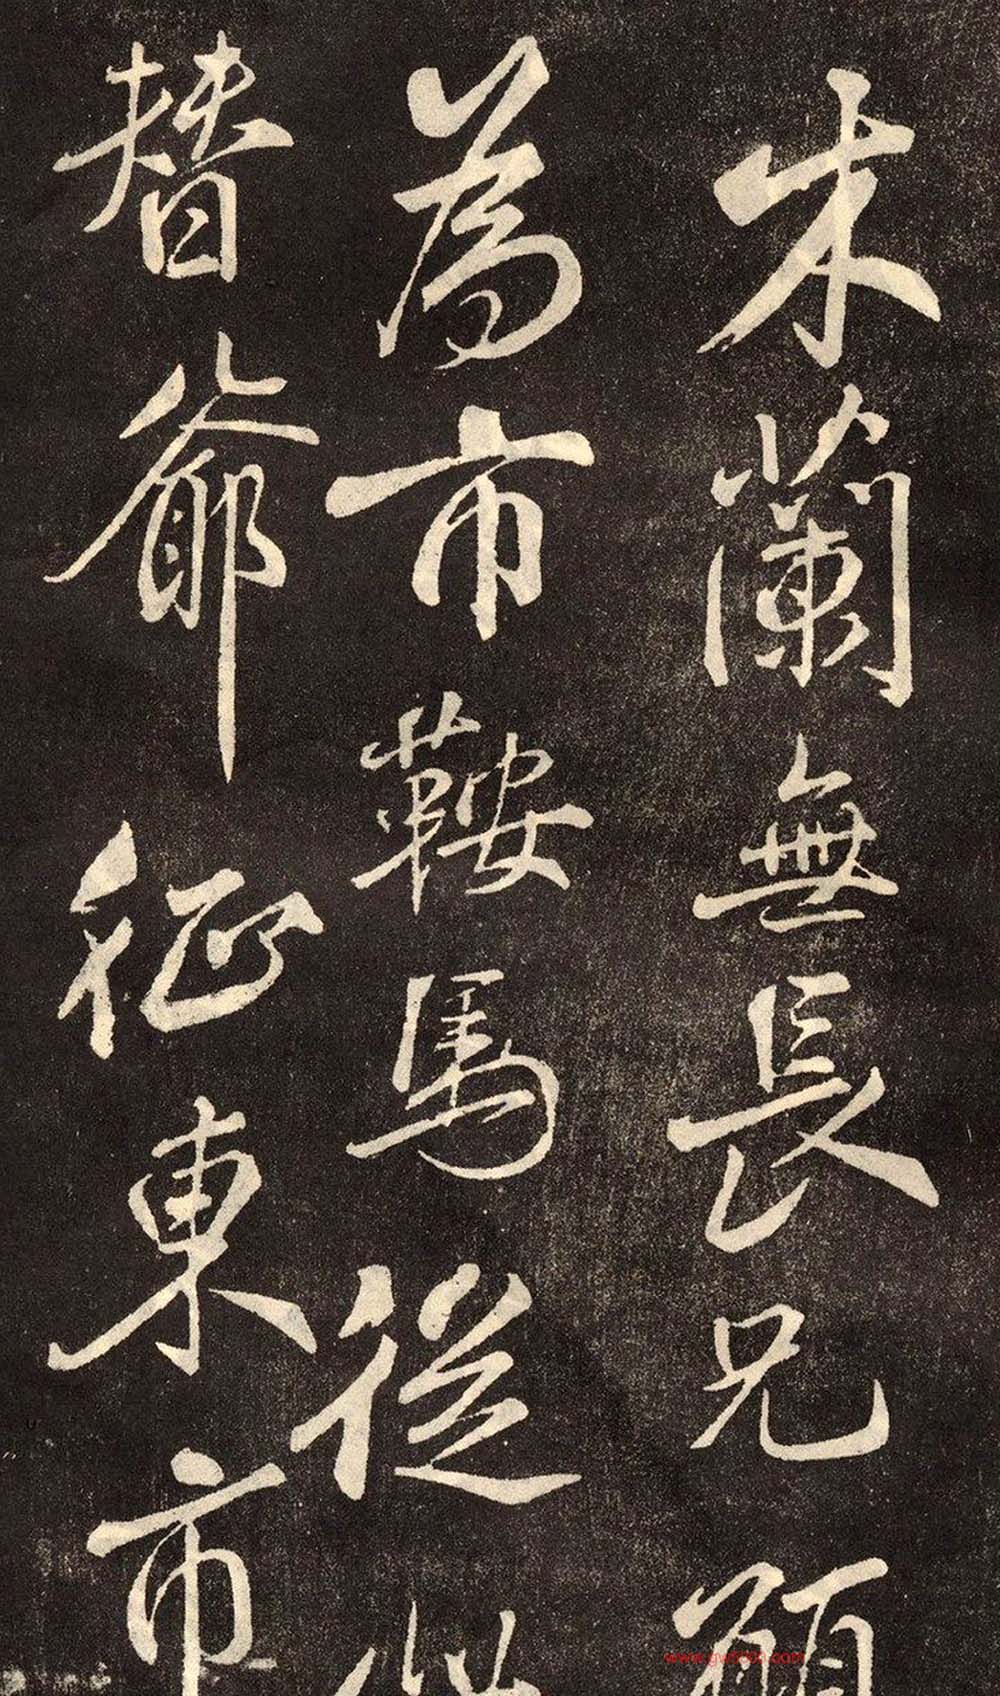 木蘭無長兄願
為市鞍馬從此
替爺征東市
www.gwz800.com